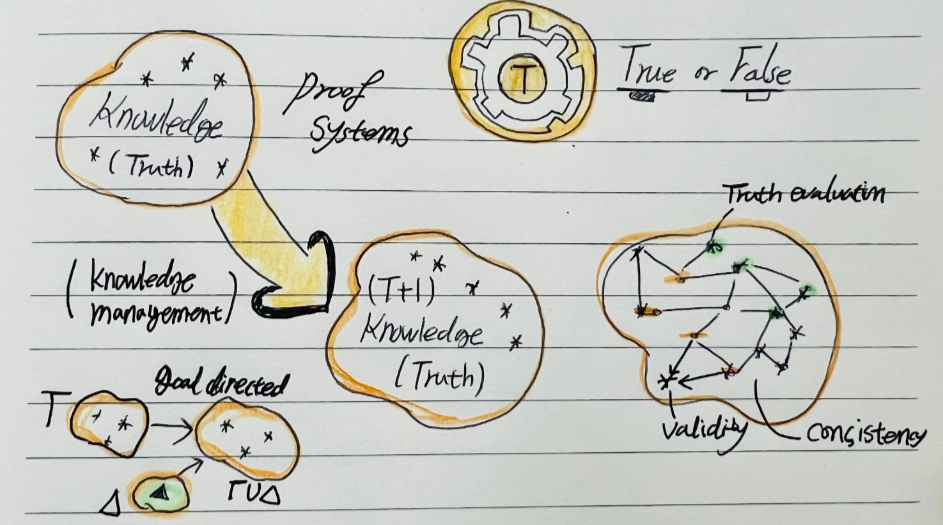 Knowledge
(Truth)
Proof
Systems
T
True or False
(Knowledge
management)
(T+1)
Knowledge
(Truth)
Truth evaluation
Validity
Consistency
Goal directed
T
Δ
TUΔ